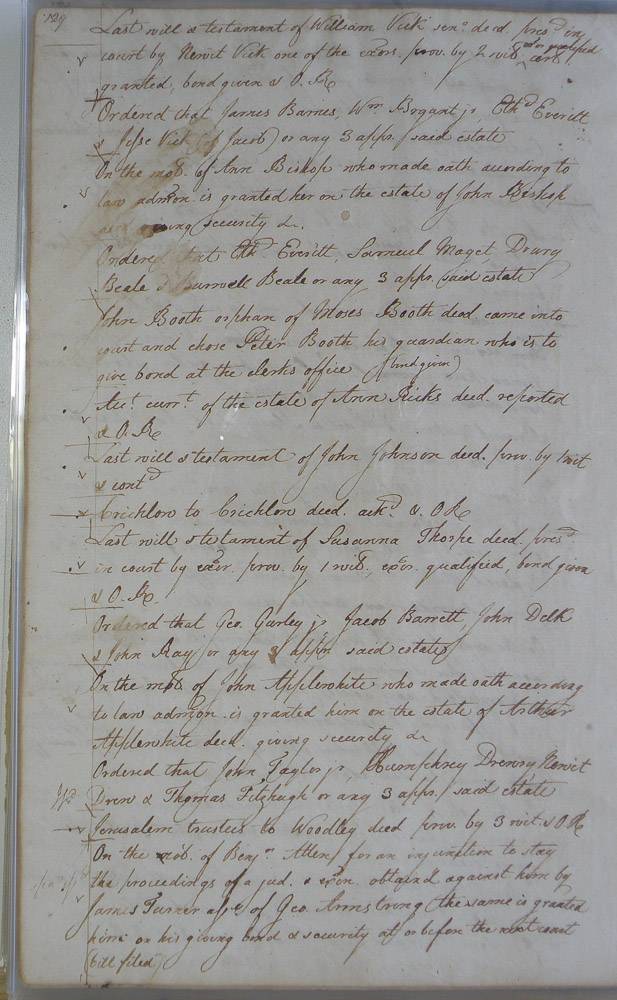 129
Last will & testament of William Vick senr. decd. presd. in
court by Newit Vick one of the exors. prov. by 2 wits. exor qualified cert.
granted, bond given & O. R
Ordered that James Barnes, Wm. Bryant jr, Ethd. Everitt
& Jesse Vick (of Jacob) or any 3 appr. said estate
On the mot. of Ann Bishop who made oath according to
law admon. is granted her on the estate of John Bishop
giving security &c.
Ordered that Ethd. Everitt, Samuel Maget Drury
Beale & Burwell Beale or any 3 appr. said estate
John Booth orphan of Moses Booth decd. came into
court and chose Peter Booth his guardian who is to
give bond at the clerks office (bond given)
Act. currt. of the estate of Ann Ricks decd. reported
& O. R
Last will & testament of John Johnson decd. prov. by 1 wit
& contd
Crichlow to Crichlow deed. ackd. & O R
Last will & testament of Susanna Thorpe decd. presd.
in court by exor. prov. by 1 wit., exor. qualified, bond given
& O. R.
Ordered that Geo. Gurley jr, Jacob Barrett, John Delk
& John Ray or any 3 appr. said estate
On the mot. of John Applewhite who made oath according
to law admon. is granted him on the estate of Arthur
Applewhite decd. giving security &c
Ordered that John Taylor jr, Humphrey Drewry Newit
Drew & Thomas Fitzhugh or any 3 appr. said estate
Jerusalem trustees to Woodley deed prov. by 3 wit. & O R
On the mot. of Benjn. Atten for an injunction to stay
the proceedings of a jud. & exon. obtaind against him by
James Turner asse of Geo. Armstrong the same is granted
him on his giving bond & security at or before the next court
bill filed